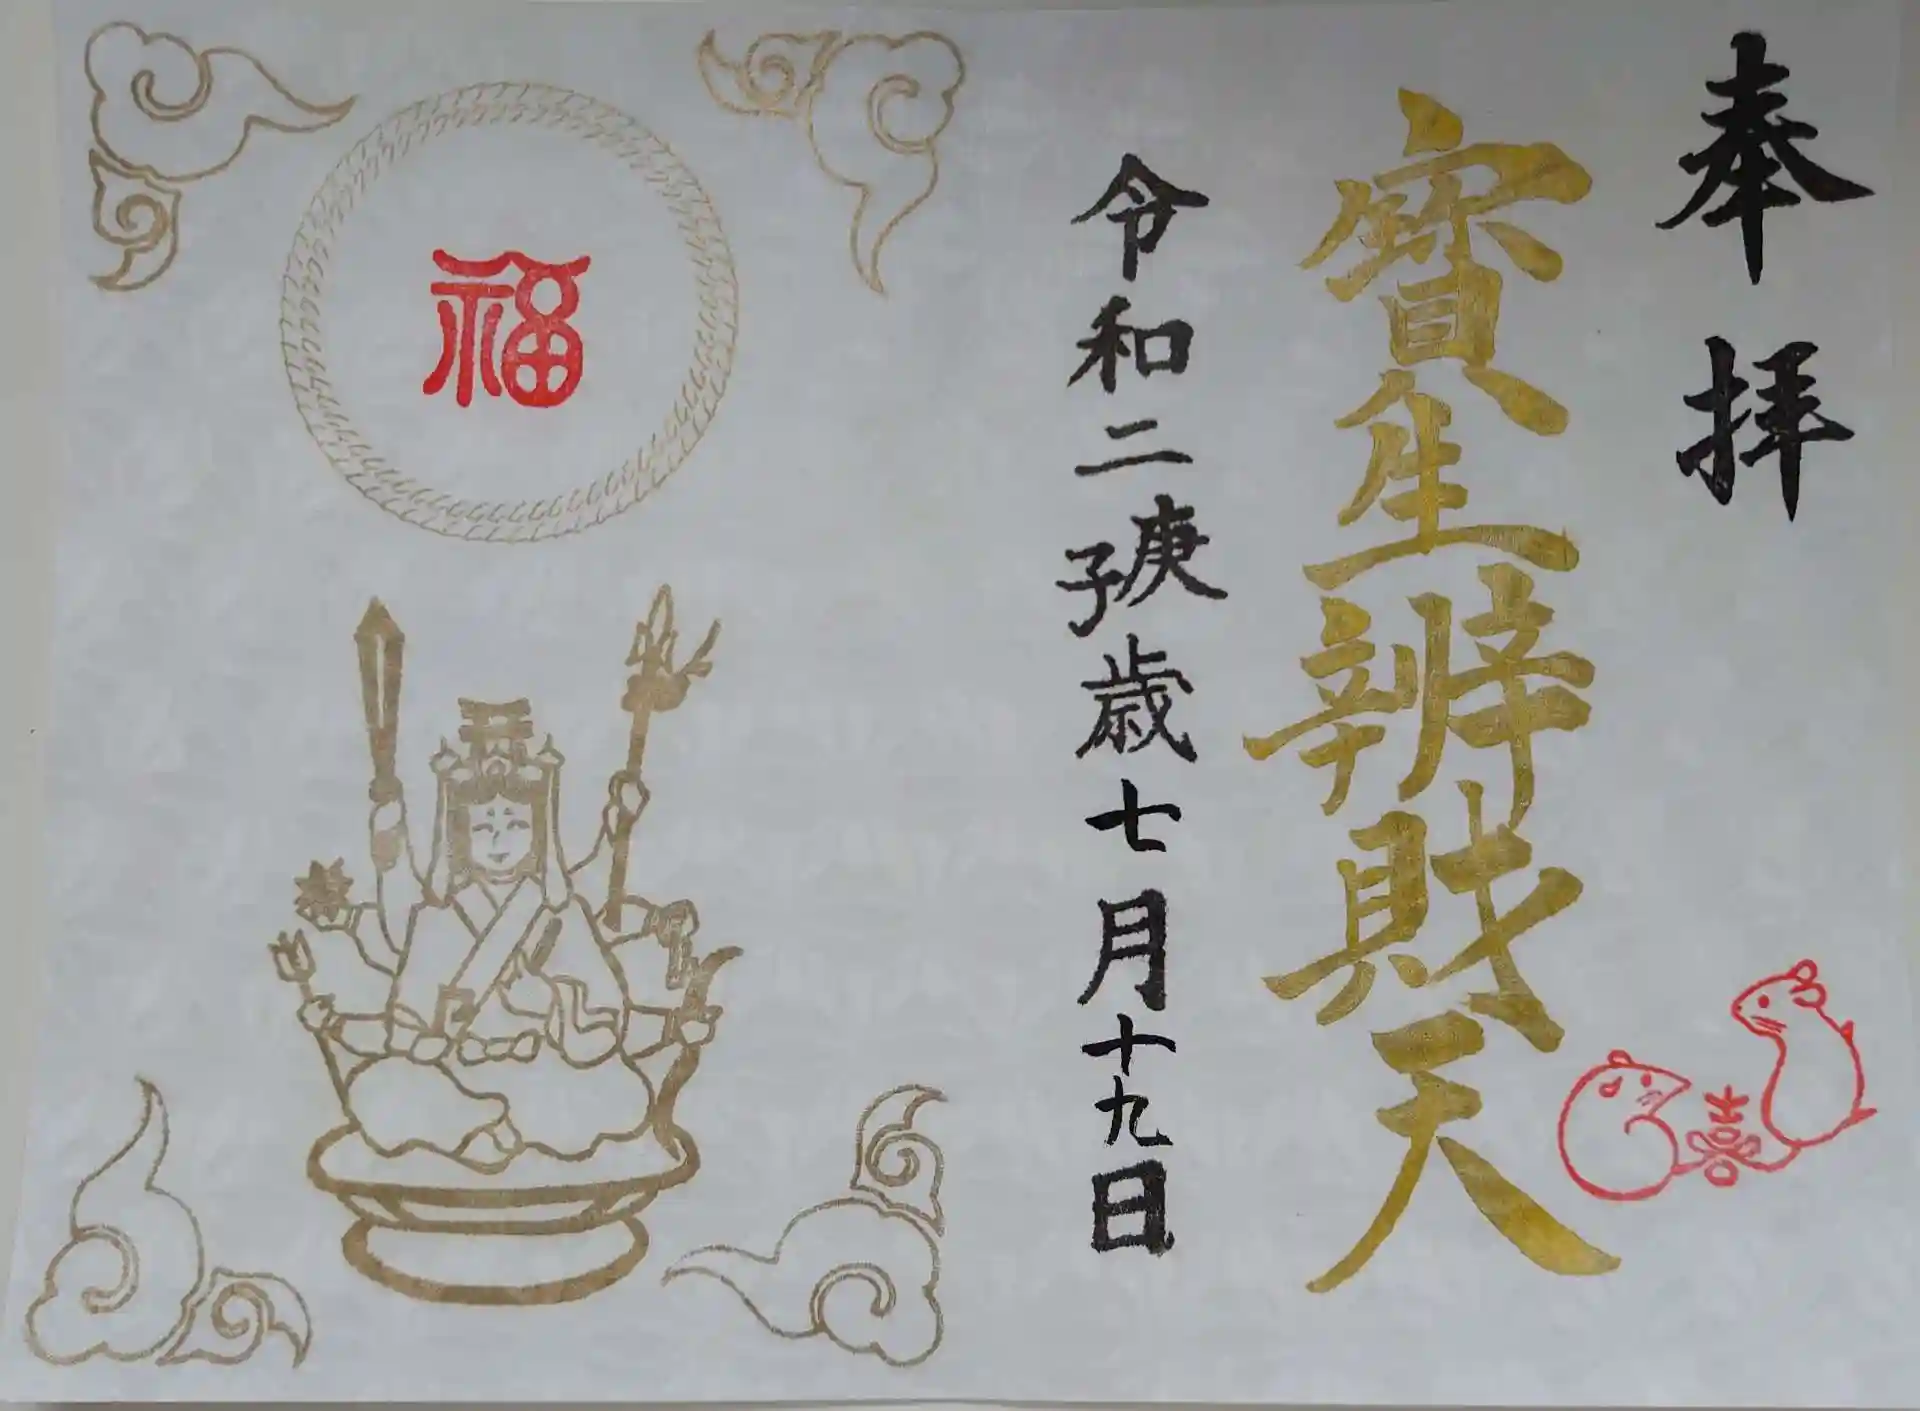 奉拝
寶生辨財天
令和二庚子歳七月十九日
福
喜